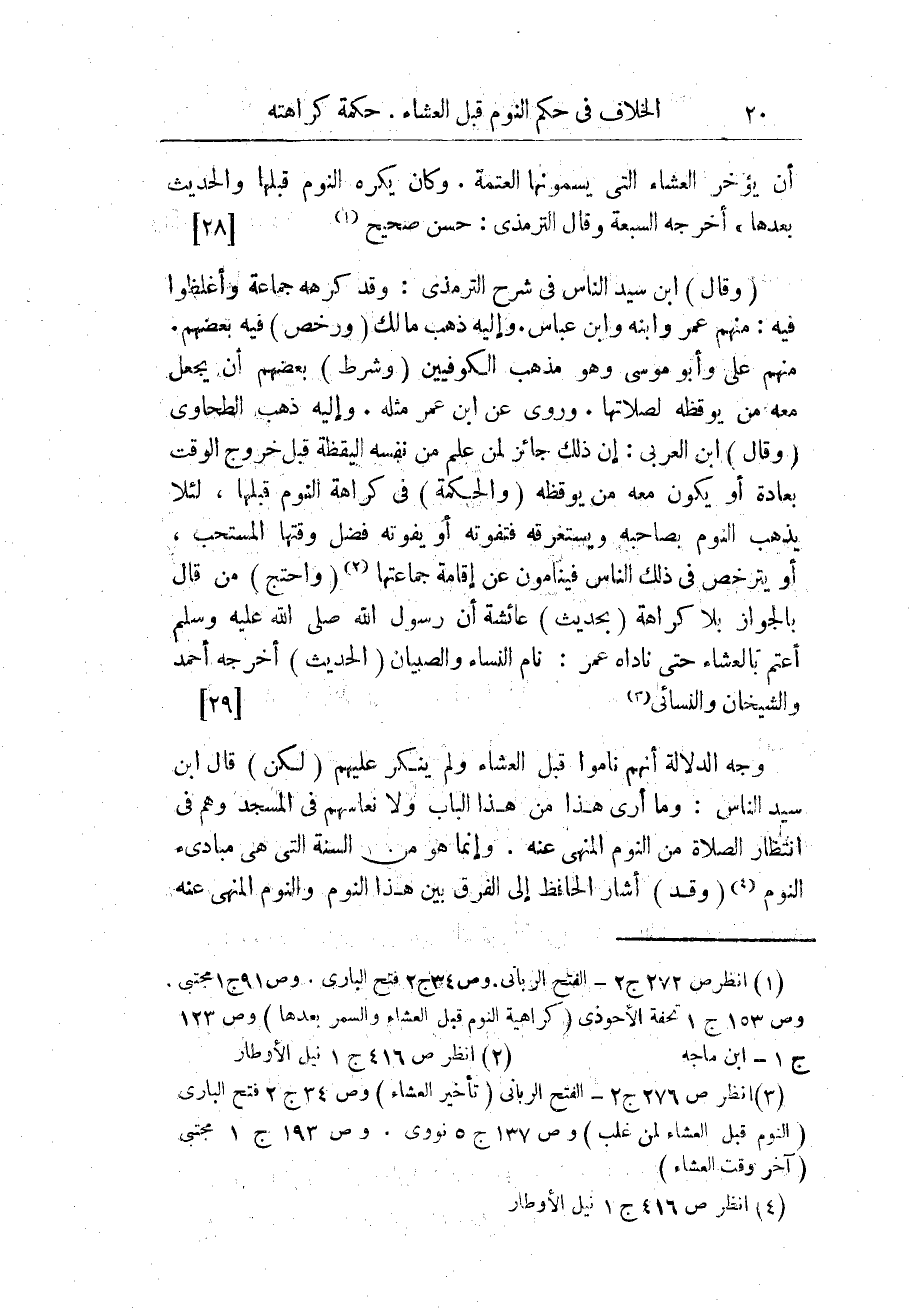 ٢٠ الخلاف فى حكم النوم قبل العشاء . حكمة كراهته
أن يؤخر العشاء التى يسمونها العتمة . وكان يكره النوم قبلها والحديث
بعدها ، أخرجه السبعة وقال الترمذى : حسن صحيح (١) [٢٨]
( وقال ) ابن سيد الناس فى شرح الترمذى : وقد كرهه جماعة وأغلظوا
فيه : منهم عمر وابنه وابن عباس . وإليه ذهب مالك ( ورخص ) فيه بعضهم .
منهم على وأبو موسى وهو مذهب الكوفيين ( وشرط ) بعضهم أن يجعل
معه من يوقظه لصلاتها . وروى عن ابن عمر مثله . وإليه ذهب الطحاوى
( وقال ) ابن العربى : إن ذلك جائز لمن علم من نفسه اليقظة قبل خروج الوقت
بعادة أو يكون معه من يوقظه ( والحكمة ) فى كراهة النوم قبلها ، لئلا
يذهب النوم بصاحبه ويستغرقه فتفوته أو يفوته فضل وقتها المستحب ،
أو يترخص فى ذلك الناس فينامون عن إقامة جماعتها (٢) ( واحتج ) من قال
بالجواز بلا كراهة ( بحديث ) عائشة أن رسول الله صلى الله عليه وسلم
أعتم بالعشاء حتى ناداه عمر : نام النساء والصبيان ( الحديث ) أخرجه أحمد
والشيخان والنسائى (٣) [٢٩]
وجه الدلالة أنهم ناموا قبل العشاء ولم ينكر عليهم ( لكن ) قال ابن
سيد الناس : وما أرى هذا من هذا الباب ولا نعاسهم فى المسجد وهم فى
انتظار الصلاة من النوم المنهى عنه . وإنما هو من السنة التى هى مبادىء
النوم (٤) ( وقد ) أشار الحافظ إلى الفرق بين هذا النوم والنوم المنهى عنه
(١) انظر ص ٢٧٢ ج ٢ – الفتح الربانى . وص ٣٤ ج ٢ فتح البارى . وص ٩١ ج ١ مجتبى .
وص ١٥٣ ج ١ تحفة الأحوذى ( كراهية النوم قبل العشاء والسمر بعدها ) وص ١٢٣
ج ١ – ابن ماجه (٢) انظر ص ٤١٦ ج ١ نيل الأوطار
(٣) انظر ص ٢٧٦ ج ٢ – الفتح الربانى ( تأخير العشاء ) وص ٣٤ ج ٢ فتح البارى
( النوم قبل العشاء لمن غلب ) وص ١٣٧ ج ٥ نووى . وص ١٩٣ ج ١ مجتبى
( آخر وقت العشاء )
(٤) انظر ص ٤١٦ ج ١ نيل الأوطار